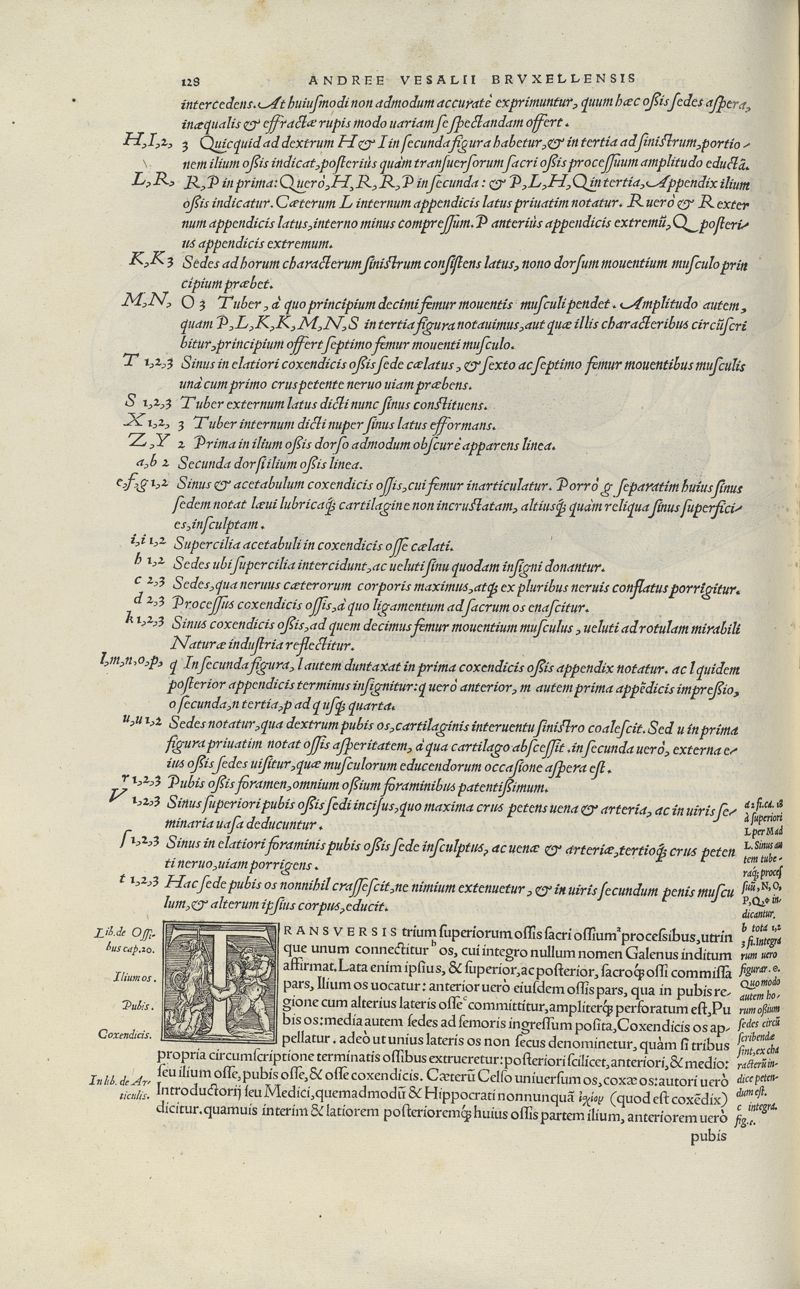 128 ANDREE VESALII BRVXELLENSIS
intercedens. At huiusmodi non admodum accuratè exprimuntur, quum hæc oßis sedes aspera,
inæqualis & effractæ rupis modo uariam se spectandam offert.
H,I,2, 3 Quicquid ad dextrum H & I in secunda figura habetur, & in tertia ad sinistrum, portio-
nem ilium oßis indicat, posterius quàm transuersorum sacri oßis processuum amplitudo eductā.
L,R, R,P in prima: Q uerò, H, R, R, P in secunda: & P, L, H, Q in tertia, Appendix ilium
oßis indicatur. Cæterum L internum appendicis latus priuatim notatur. R uerò & R exter
num appendicis latus, interno minus compressum. P anterius appendicis extremū, Q posteri-
us appendicis extremum.
K,K 3 Sedes ad horum characterum sinistrum consistens latus, nono dorsum mouentium musculo prin
cipium præbet.
M,N, O 3 Tuber, à quo principium decimi femur mouentis musculi pendet. Amplitudo autem,
quam P, L, K, K, M, N, S in tertia figura notauimus, aut quæ illis characteribus circūscri
bitur, principium offert septimo femur mouenti musculo.
T 1,2,3 Sinus in elatiori coxendicis oßis sede cælatus, & sexto ac septimo femur mouentibus musculis
unà cum primo crus petente neruo uiam præbens.
S 1,2,3 Tuber externum latus dicti nunc sinus constituens.
X 1,2, 3 Tuber internum dicti nuper sinus latus efformans.
Z,Y 2 Prima in ilium oßis dorso admodum obscurè apparens linea.
a,b 2 Secunda dorsi ilium oßis linea.
e,f,g 1,2 Sinus & acetabulum coxendicis ossis, cui femur inarticulatur. Porrò g separatim huius sinus
sedem notat læui lubricaq; cartilagine non incrustatam, altiusq; quàm reliqua sinus superfici-
es, insculptam.
i,i 1,2 Supercilia acetabuli in coxendicis osse cælati.
h 1,2 Sedes ubi supercilia intercidunt, ac ueluti sinu quodam insigni donantur.
c 2,3 Sedes, qua neruus cæterorum corporis maximus, atq; ex pluribus neruis conflatus porrigitur.
d 2,3 Processus coxendicis ossis, à quo ligamentum ad sacrum os enascitur.
k 1,2,3 Sinus coxendicis oßis, ad quem decimus femur mouentium musculus, ueluti ad rotulam mirabili
Naturæ industria reflectitur.
l,m,n,o,p, q In secunda figura, l autem duntaxat in prima coxendicis oßis appendix notatur. ac l quidem
posterior appendicis terminus insignitur: q uerò anterior, m autem prima appēdicis impreßio,
o secunda, n tertia, p ad q usq; quarta.
u,u 1,2 Sedes notatur, qua dextrum pubis os, cartilaginis interuentu sinistro coalescit. Sed u in prima
figura priuatim notat ossis asperitatem, à qua cartilago abscessit. in secunda uerò, externa e-
ius oßis sedes uisitur, quæ musculorum educendorum occasione aspera est.
r 1,2,3 Pubis oßis foramen, omnium oßium foraminibus patentißimum.
V 1,2,3 Sinus superiori pubis oßis sedi incisus, quo maxima crus petens uena & arteria, ac in uiris se-
minaria uasa deducuntur.
ſ 1,2,3 Sinus in elatiori foraminis pubis oßis sede insculptus, ac uenæ & arteriæ, tertioq; crus peten
ti neruo, uiam porrigens.
t 1,2,3 Hac sede pubis os nonnihil crassescit, ne nimium extenuetur, & in uiris secundum penis muscu
lum, & alterum ipsius corpus, educit.
a 2 fi.ca. 18
à superiori
L per M ad
L. Sinus au
tem tube-
raq; proces
suū, N, O,
P, Q, in-
dicantur.
b tota 1,2
3 fi. Integra
rum uero
figurar. e.
Quo modo
autem ho-
rum oßium
sedes circū
scribendæ
sint, ex cha
racterū in-
dice peten-
dum est.
c integra.
fig. e.
Lib. de Ossi-
bus cap.20.
Ilium os.
Pubis.
Coxendicis.
In lib. de Ar-
ticulis.
TRANSVERSIS trium superiorum ossis sacri ossium a processibus, utrin
que unum connectitur b os, cui integro nullum nomen Galenus inditum
affirmat. Lata enim ipsius, & superior, ac posterior, sacroq; ossi commissa
pars, Ilium os uocatur: anterior uerò eiusdem ossis pars, qua in pubis re-
gione cum alterius lateris osse c committitur, ampliterq; perforatum est, Pu
bis os: media autem sedes ad femoris ingressum posita, Coxendicis os ap-
pellatur. adeò ut unius lateris os non secus denominetur, quàm si tribus
propria circumscriptione terminatis ossibus extrueretur: posteriori scilicet, anteriori, & medio:
seu ilium osse, pubis osse, & osse coxendicis. Cæterū Celso uniuersum os, coxæ os: autori uerò
Introductorij seu Medici, quemadmodū & Hippocrati nonnunquā ἰσχίον (quod est coxēdix)
dicitur. quamuis interim & latiorem posterioremq; huius ossis partem ilium, anteriorem uerò
pubis